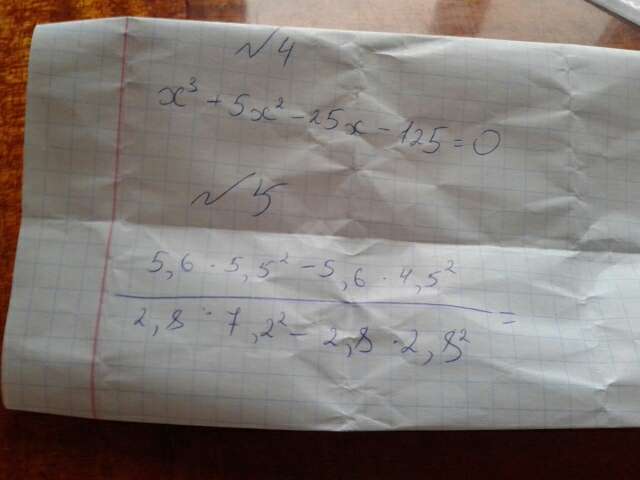 №4
x³ + 5x² - 25x - 125 = 0
№5
5,6 · 5,5² - 5,6 · 4,5²
2,8 · 7,2² - 2,8 · 2,8² =